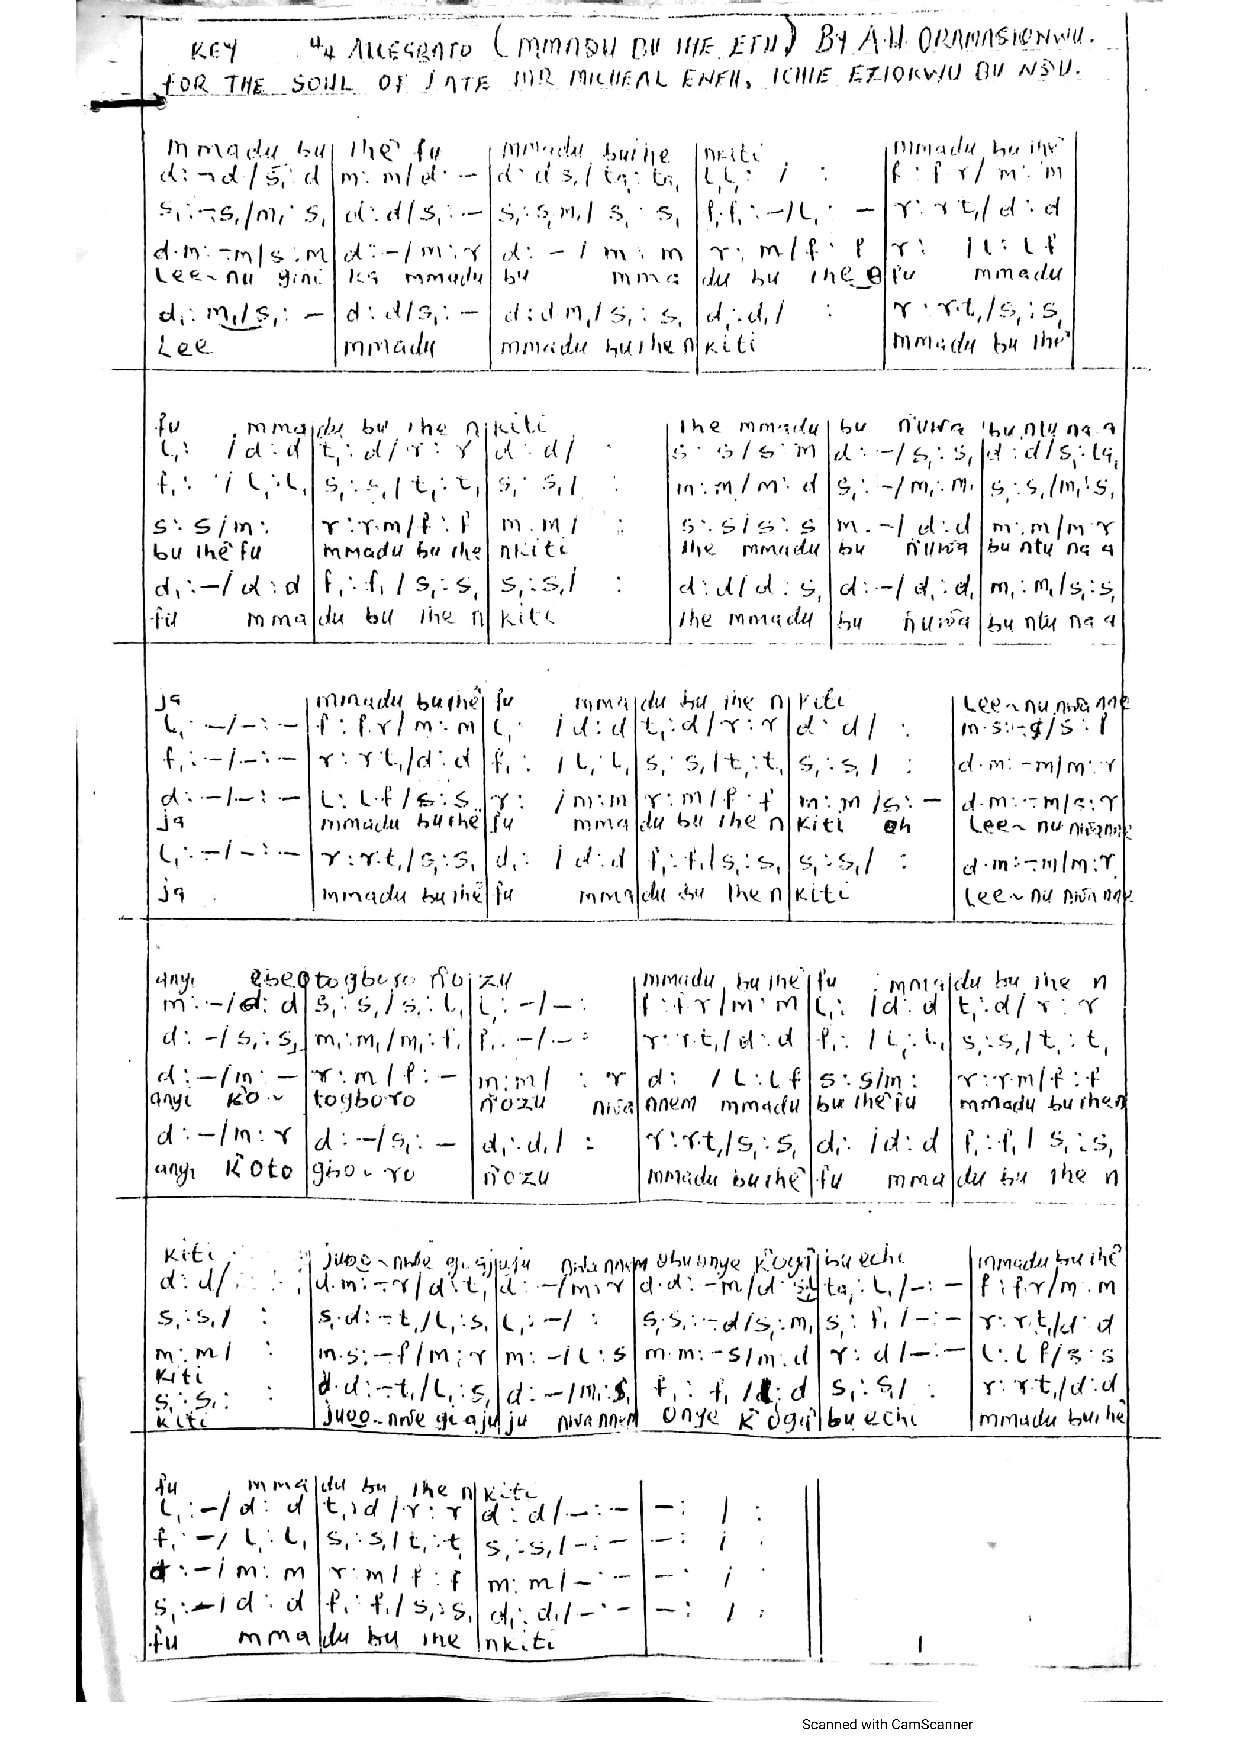 KEY 4/4 ALLEGRATO (MMADU BU IHE EFU) BY A.U. ORAMASIONWU.
FOR THE SOUL OF LATE MR MICHEAL ENEH, ICHIE EZIOKWU BU NDU.
mmadu bu | ihe fu | mmadu bu ihe | nkiti | mmadu bu ihe
d:-d/s,:d | m:m/d:- | d:d s,/ta,:ta, | l,l,: / : | f:f r/m:m
s,:-s,/m,:s, | d:d/s,:- | s,:s,m,/s,:s, | f,f,:-/l,:- | r:r t,/d:d
d.m:-m/s:m | d:-/m:r | d:-/m:m | r:m/f:f | r: /l:l f
Lee~nu gini | ka mmadu | bu mma | du bu ihe e | fu mmadu
d,:m,/s,:- | d:d/s,:- | d:d m,/s,:s, | d,:d,/ : | r:r t,/s,:s,
Lee | mmadu | mmadu bu ihe n | kiti | mmadu bu ihe
fu mma | du bu ihe n | kiti | Ihe mmadu | bu n'uwa | bu ntu na a
l,: /d:d | t,:d/r:r | d:d/ : | s:s/s:m | d:-/s,:s, | d:d/s,:la,
f,: /l,:l, | s,:s,/t,:t, | s,:s,/ : | m:m/m:d | s,:-/m,:m, | s,:s,/m,:s,
s:s/m: | r:r.m/f:f | m.m/ : | s:s/s:s | m.-/d:d | m:m/m r
bu ihe fu | mmadu bu ihe | nkiti | Ihe mmadu | bu n'uwa | bu ntu na a
d,:-/d:d | f,:f,/s,:s, | s,:s,/ : | d:d/d:s, | d:-/d,:d, | m,:m,/s,:s,
fu mma | du bu ihe n | kiti | Ihe mmadu | bu n'uwa | bu ntu na a
ja | mmadu bu ihe | fu mma | du bu ihe n | kiti | Lee~nu nwa nne
l,:-/-:- | f:f.r/m:m | l,: /d:d | t,:d/r:r | d:d/ : | m.s:-s/s:f
f,:-/-:- | r:r t,/d:d | f,: /l,:l, | s,:s,/t,:t, | s,:s,/ : | d.m:-m/m:r
d:-/-:- | l:l.f/s:s | r: /m:m | r:m/f:f | m:m/s:- | d.m:-m/s:r
ja | mmadu bu ihe | fu mma | du bu ihe n | kiti eh | Lee~nu nwa nne
l,:-/-:- | r:r.t,/s,:s, | d,: /d:d | f,:f,/s,:s, | s,:s,/ : | d.m:-m/m:r
ja | mmadu bu ihe | fu mma | du bu ihe n | kiti | Lee~nu nwa nne
anyi ebeo | togboro n'o | zu | mmadu bu ihe | fu mma | du bu ihe n
m:-/d:d | s,:s,/s,:l, | l,:-/-: | f:f r/m:m | l,: /d:d | t,:d/r:r
d:-/s,:s, | m,:m,/m,:f, | f,:-/-: | r:r.t,/d:d | f,: /l,:l, | s,:s,/t,:t,
d:-/m:- | r:m/f:- | m:m/ :r | d: /l:l f | s:s/m: | r:r m/f:f
anyi ko~ | togboro | n'ozu nwa | nnem mmadu | bu ihe fu | mmadu bu ihe n
d:-/m:r | d:-/s,:- | d,:d,/ : | r:r.t,/s,:s, | d,: /d:d | f,:f,/s,:s,
anyi koto | gbo~ro | n'ozu | mmadu bu ihe | fu mma | du bu ihe n
kiti | juoo~nwe gi ajuju | nwa nnem | obu onye k'ogi | bu echi | mmadu bu ihe
d:d/ : | d.m:-r/d:t, | d:-/m:r | d.d:-m/d:sl | ta,:l,/-:- | f:f r/m.m
s,:s,/ : | s,.d:-t,/l,:s, | l,:-/ : | s,s,:-d/s,:m, | s,:f,/-:- | r:r.t,/d:d
m:m/ : | m.s:-f/m:r | m:-/l:s | m.m:-s/m:d | r:d/-:- | l:l f/s:s
kiti
s,:s,: : | d.d:-t,/l,:s, | d:-/m,:s, | f,:f,/d:d | s,:s,/ : | r:r.t,/d:d
kiti | juoo~nwe gi aju | ju nwa nnem | onye k'ogi | bu echi | mmadu bu ihe
fu mma | du bu ihe n | kiti
l,:-/d:d | t,:d/r:r | d:d/-:- | -: / :
f,:-/l,:l, | s,:s,/t,:t, | s,:s,/-:- | -: / :
d:-/m:m | r:m/f:f | m:m/-:- | -: /
s,:-/d:d | f,:f,/s,:s, | d,:d,/-:- | -: / :
fu mma | du bu ihe | nkiti
Scanned with CamScanner